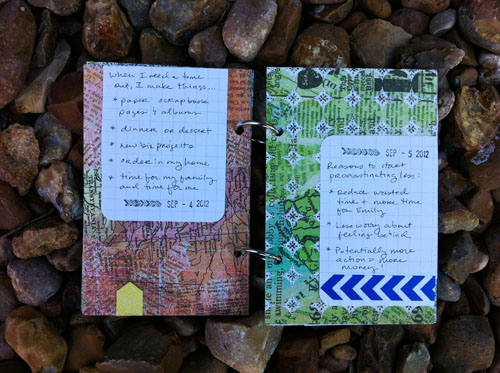 When I need a time
out, I make things...
* paper scrapbook
pages & albums
* dinner or dessert
* new biz projects
* order in my home
* time for my family
and time for me
SEP - 4 2012
SEP - 5 2012
Reasons to start
procrastinating less:
* Reduce wasted
time + more time
for Emily
* Less worry about
feeling behind
* Potentially more
action = more
money!